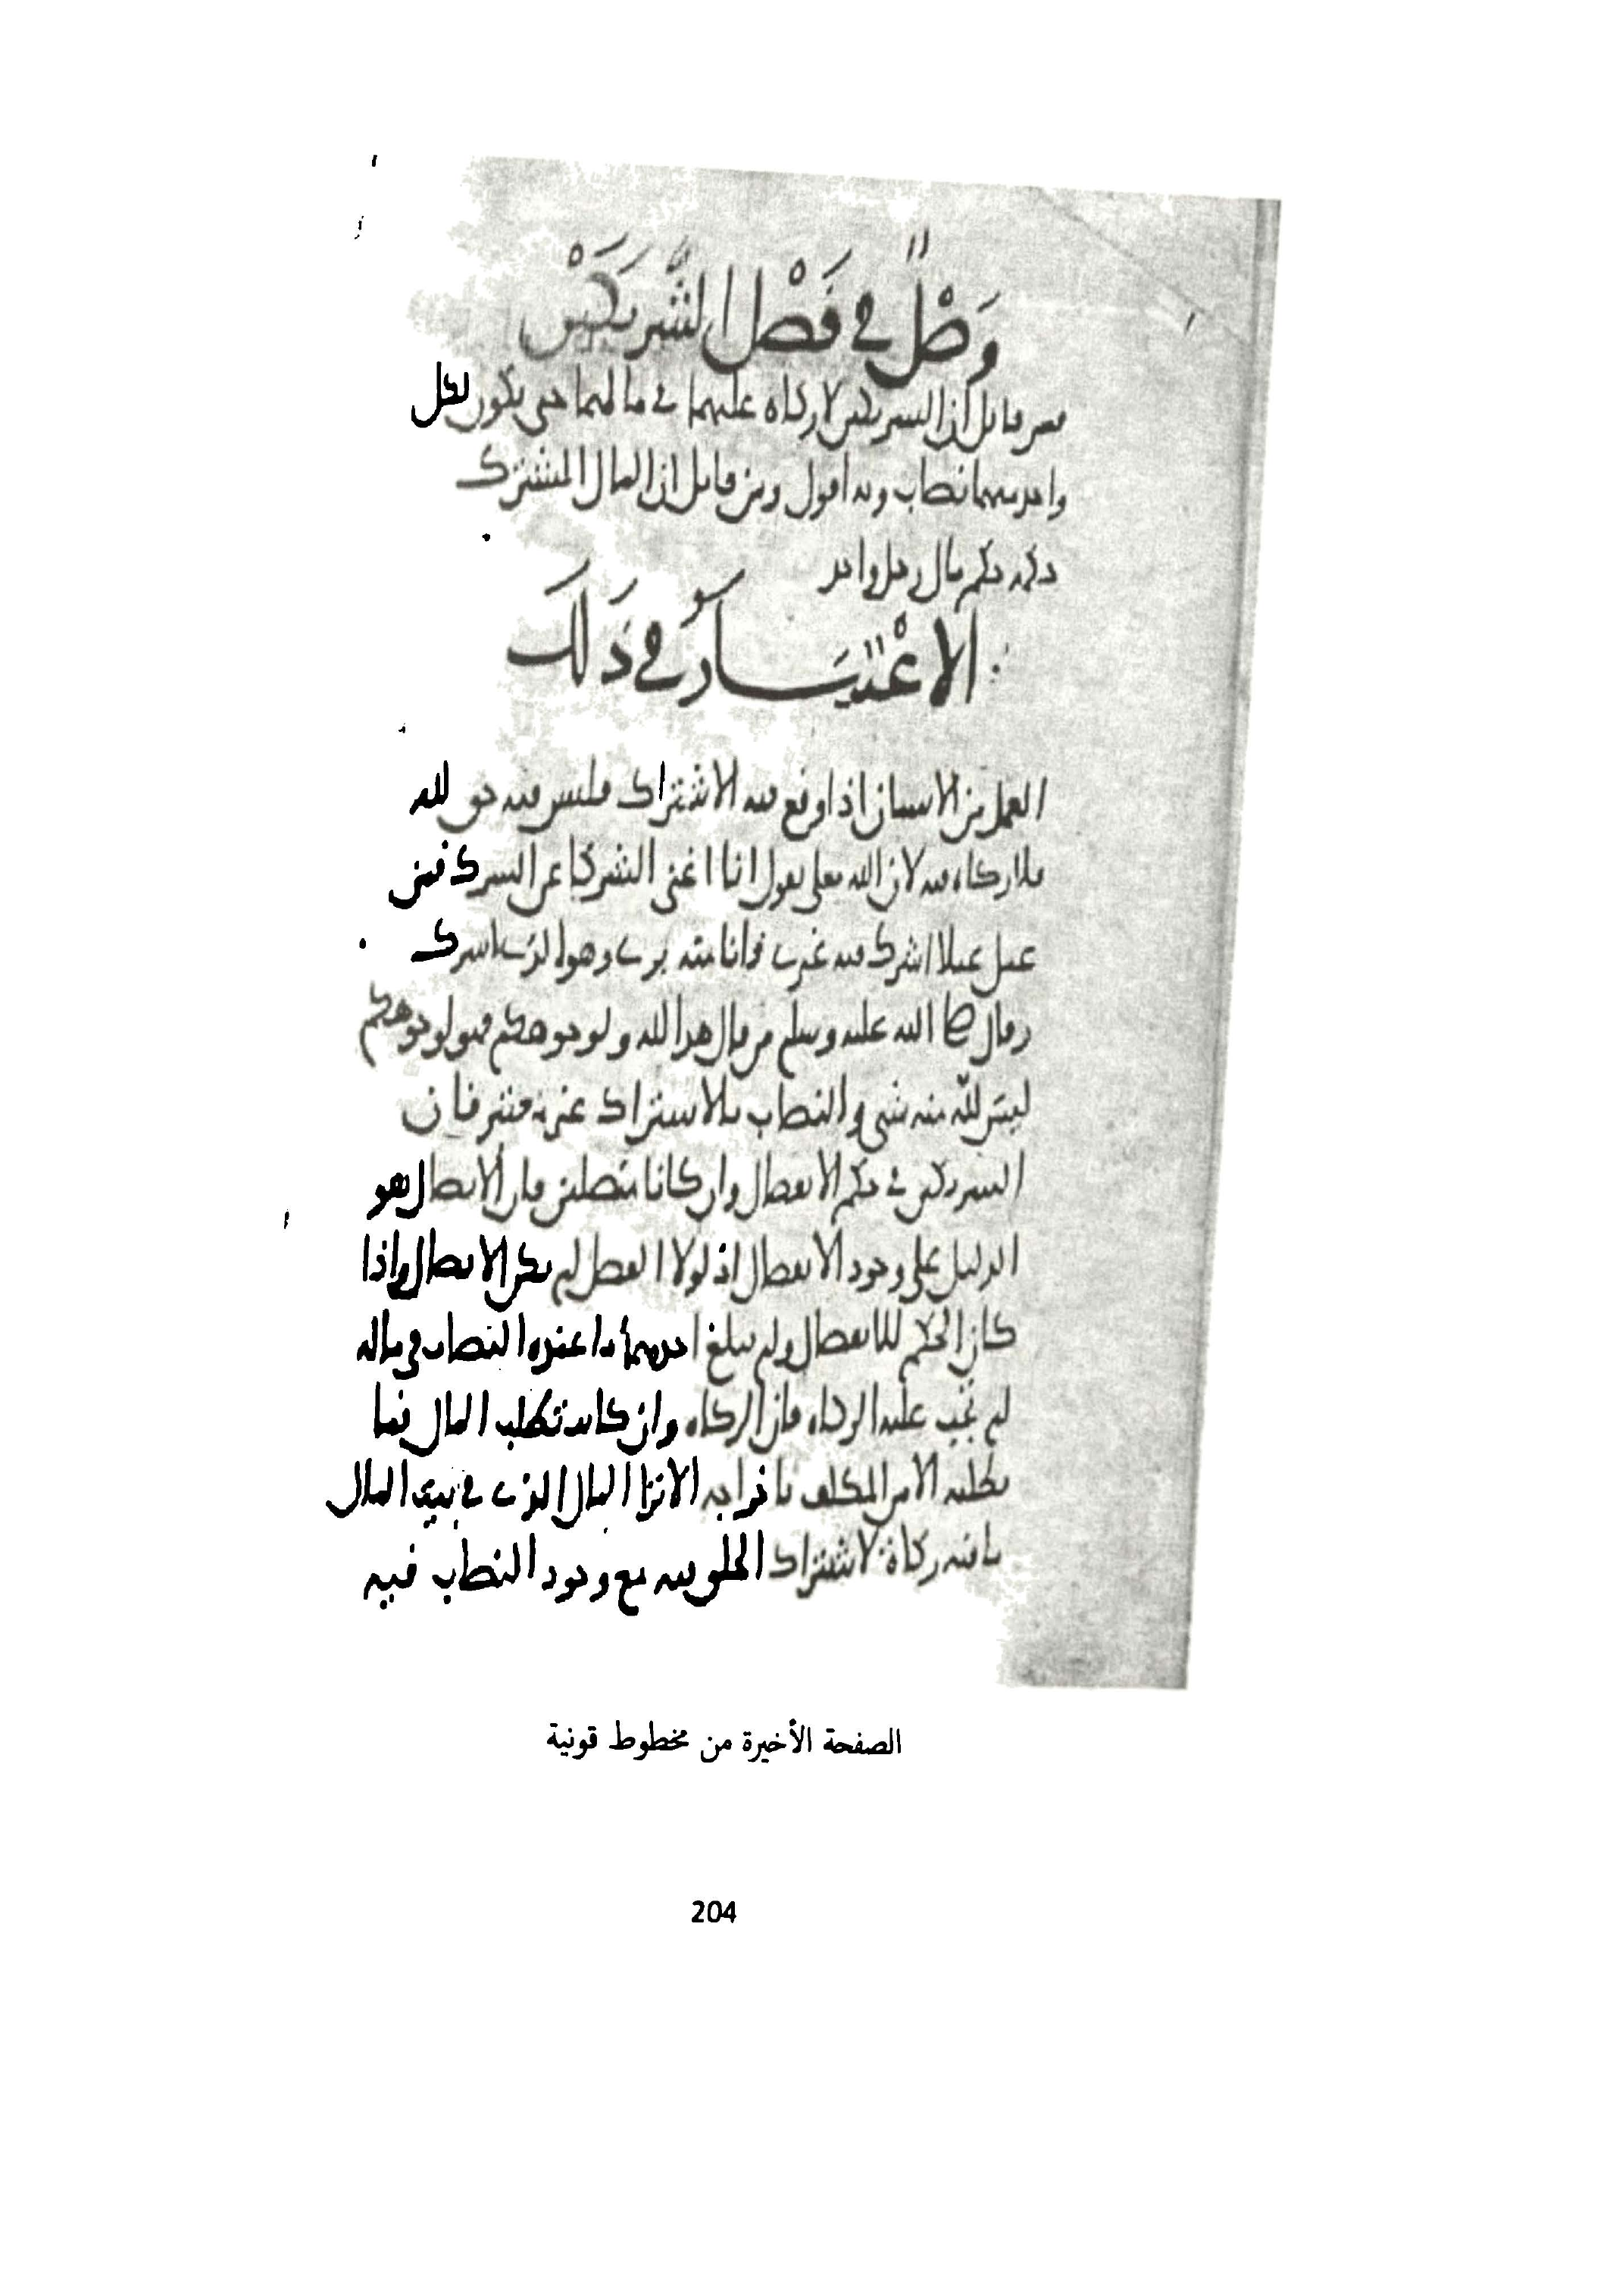 وَصْلٌ في فَصْل الشَّريكَيْن
فمن قائل ان الشريكين لا زكاة عليهما في مالهما حتى يكون لكل
واحد منهما نصاب وبه اقول ومن قائل ان المال المشترك
حكمه حكم مال رجل واحد
الاعْتبَارُ في ذَلكَ
العمل من الانسان اذا وقع فيه الاشتراك فليس فيه حق لله
فلا زكاة فيه لان الله تعلى يقول انا اغنى الشركا عن الشرك فمن
عمل عملا اشرك فيه غيري فانا منه بري وهو الذي اشرك
وقال صلى الله عليه وسلم من قال هذا لله ولوجوهكم فهو لوجوهكم
ليس لله منه شي والنصاب بالاشتراك غير معتبر فان
الشريكين في حكم الانفصال وان كانا متصلين فان الاتصال هو
الدليل على وجود الانفصال اذ لولا الفصل لم يكن الاتصال واذا
كان الحكم للانفصال ولم يبلغ احدهما ما عنده النصاب في ماله
لم تجب عليه الزكاة فان الزكاة وان كانت تطلب المال فما
تطلبه الا من المكلف باخراجه الا ترا المال الذي في بيت المال
ما فيه زكاة لاشتراك الخلق فيه مع وجود النصاب فيه
الصفحة الأخيرة من مخطوط قونية
204